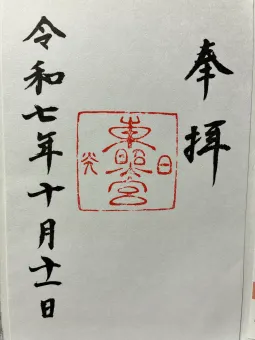 奉拝
日光
東照宮
令和七年十月十一日